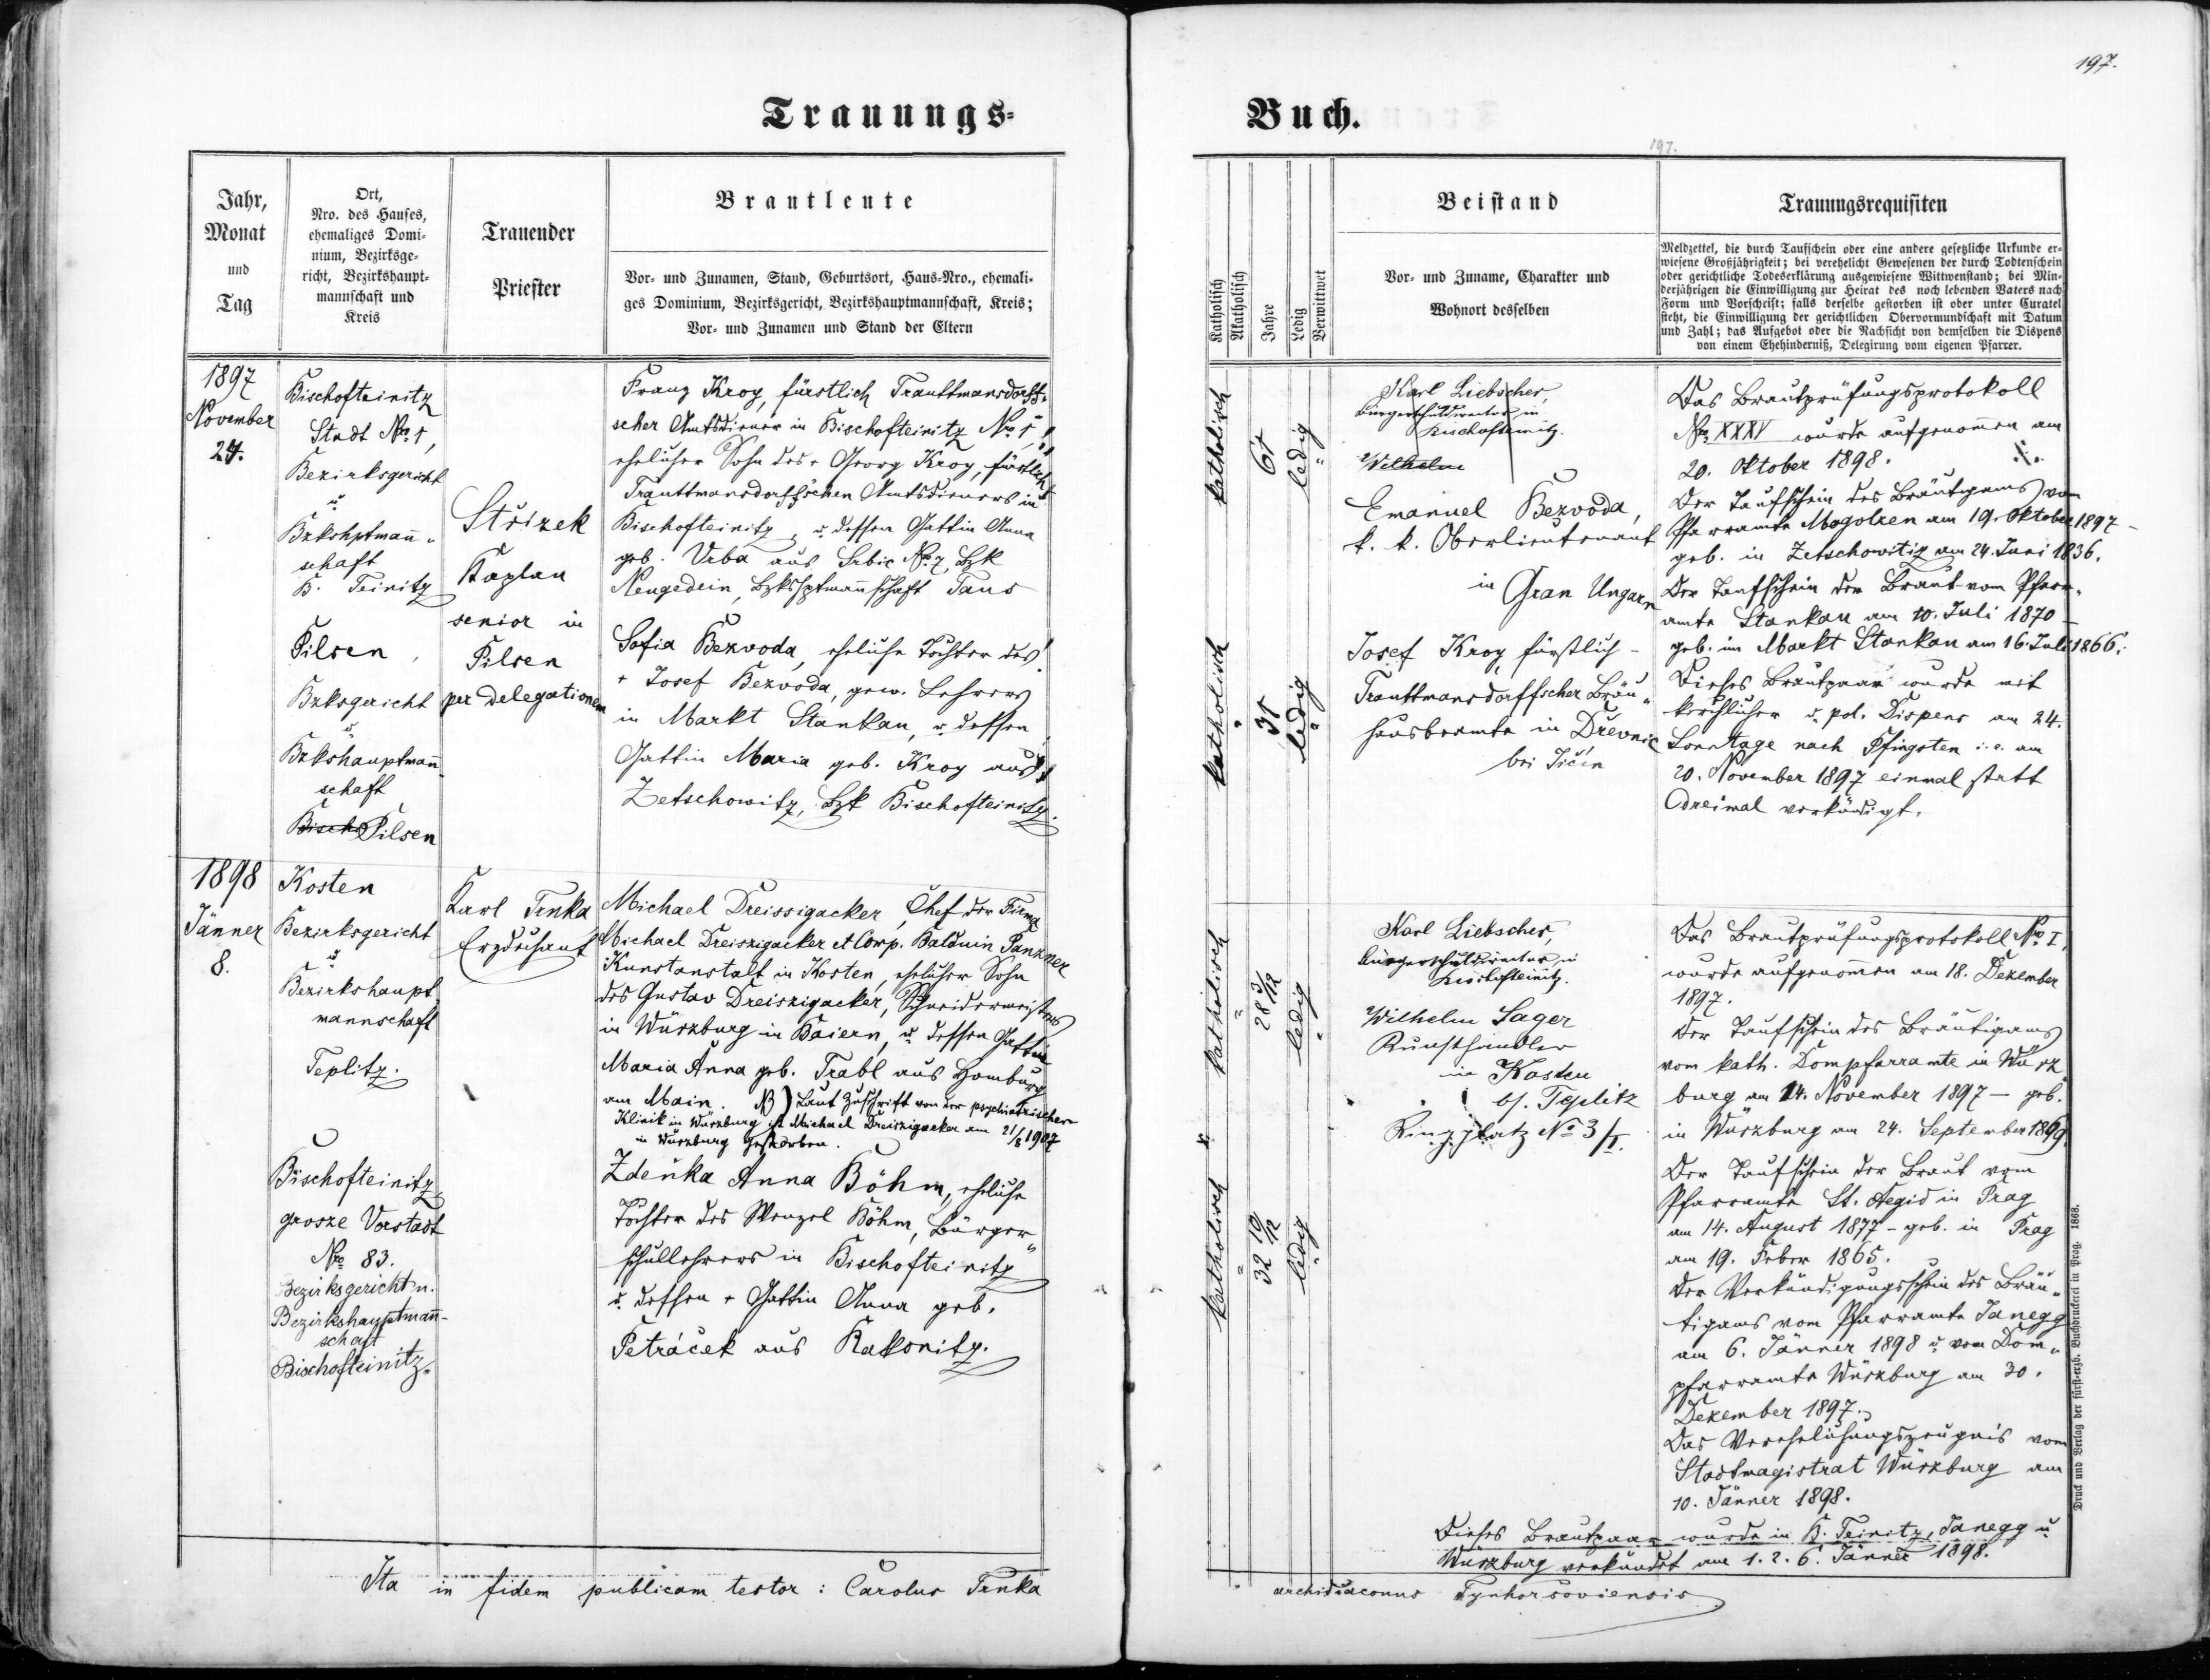 197.
Trauungs-
Buch.
197.
Jahr,
Monat
und
Tag
Ort,
Nro. des Hauses,
ehemaliges Domi-
nium, Bezirksge-
richt, Bezirkshaupt-
mannschaft und
Kreis
Trauender
Priester
Brautleute
Vor- und Zunamen, Stand, Geburtsort, Haus-Nro., ehemali-
ges Dominium, Bezirksgericht, Bezirkshauptmannschaft, Kreis;
Vor- und Zunamen und Stand der Eltern
Katholisch
Akatholisch
Jahre
Ledig
Verwittwet
Beistand
Vor- und Zuname, Charakter und
Wohnort desselben
Trauungsrequisiten
Meldzettel, die durch Taufschein oder eine andere gesetzliche Urkunde er-
wiesene Großjährigkeit; bei verehelicht Gewesenen der durch Todtenschein
oder gerichtliche Todeserklärung ausgewiesene Wittwenstand; bei Min-
derjährigen die Einwilligung zur Heirat des noch lebenden Vaters nach
Form und Vorschrift; falls derselbe gestorben ist oder unter Curatel
steht, die Einwilligung der gerichtlichen Obervormundschaft mit Datum
und Zahl; das Aufgebot oder die Nachsicht von demselben die Dispens
von einem Ehehinderniß, Delegirung vom eigenen Pfarrer.
1897
November
24.
Bischofteinitz
Stadt Nro. 1,
Bezirksgericht
u.
Bzkshptmann-
schaft
B. Teinitz
Pilsen,
Bzksgericht
u.
Bzkshauptmann-
schaft
Bischo Pilsen
Střizek
Kaplan
senior in
Pilsen
per delegationem
Franz Kroy, fürstlich Trauttmansdorff-
scher Amtsdiener in Bischofteinitz Nro 1,
ehelicher Sohn des + Georg Kroy, fürstlich
Trauttmansdorff'schen Amtsdieners in
Bischofteinitz, u. dessen Gattin Anna
geb. Vrba aus Srbic Nro 7, Bzk
Neugedein, Bzkshptmannschaft Taus
Sofia Bezvoda, eheliche Tochter des
+ Josef Bezvoda, gew. Lehrers
in Markt Stankau, u. dessen
Gattin Maria geb. Kroy aus
Zetschowitz, Bzk Bischofteinitz.
katholisch
61
ledig
katholisch
31
ledig
Karl Liebscher,
Bürgerschuldirector in
Bischofteinitz.
Wilhelm
Emanuel Bezvoda,
k. k. Oberlieutenant
in Gran Ungarn
Josef Kroy fürstlich-
Trauttmansdorffscher Bräu-
hausbeamte in Dřevnic
bei Jičín
Das Brautprüfungsprotokoll
Nro XXXV wurde aufgenommen am
20. Oktober 1898. ./.
Der Taufschein des Bräutigams vom
Pfarramte Mogolzen am 19. Oktober 1897 -
geb. in Zetschowitz am 24. Juni 1836.
Der Taufschein der Braut vom Pfarr-
amte Stankau am 10. Juli 1870 -
geb. im Markt Stankau am 16. Juli 1866.
Dieses Brautpaar wurde mit
kirchlicher u. pol. Dispens am 24.
Sonntage nach Pfingsten i. e. am
20. November 1897 einmal statt
dreimal verkündigt.
1898
Jänner
8.
Kosten
Bezirksgericht
u.
Bezirkshaupt
mannschaft
Teplitz.
Bischofteinitz
grosze Vorstadt
Nro 83.
Bezirksgericht u.
Bezirkshauptmann-
schaft
Bischofteinitz.
Karl Trnka
Erzdechant
Michael Dreissigacker, Chef der Firma
Michael Dreiszigacker et Comp. Balduin Panzner
Kunstanstalt in Kosten, ehelicher Sohn
des Gustav Dreiszigacker, Schneidermeisters
in Würzburg in Baiern, u. dessen Gattin
Maria Anna geb. Trabl aus Homburg
am Main. NB) Laut Zuschrift von der psychiatrischen
Klinik in Würzburg ist Michael Dreiszigacker am 21/8 1907
in Würzburg gestorben.
Zdeňka Anna Böhm, eheliche
Tochter des Wenzel Böhm, Bürger-
schullehrers in Bischofteinitz
u. dessen + Gattin Anna geb.
Petráček aus Rakonitz.
katholisch
28 3/12
ledig
katholisch
32 10/12
ledig
Karl Liebscher,
Bürgerschuldirector in
Bischofteinitz.
Wilhelm Sager
Kunsthändler
in Kosten
bf. Teplitz
Ringplatz No 3/I.
Das Brautprüfungsprotokoll Nro I,
wurde aufgenommen am 18. Dezember
1897.
Der Taufschein des Bräutigams
vom kath. Dompfarramte in Würz
burg am 14. November 1897 - geb.
in Würzburg am 24. September 1869.
Der Taufschein der Braut vom
Pfarramte St. Aegid in Prag
am 14. August 1877 - geb. in Prag
am 19. Feber 1865.
Der Verkündigungsschein des Bräu-
tigams vom Pfarramte Janegg
am 6. Jänner 1898 u. vom Dom-
pfarramte Würzburg am 30.
Dezember 1897.
Das Verehelichungszeugnis vom
Stadtmagistrat Würzburg am
10. Jänner 1898.
Dieses Brautpaar wurde in B. Teinitz, Janegg u
Würzburg verkündet am 1. 2. 6. Jänner 1898.
Ita in fidem publicam testor: Carolus Trnka
archidiaconus Tynhorsoviensis
Druck und Verlag der fürst-erzb. Buchdruckerei in Prag. 1868.